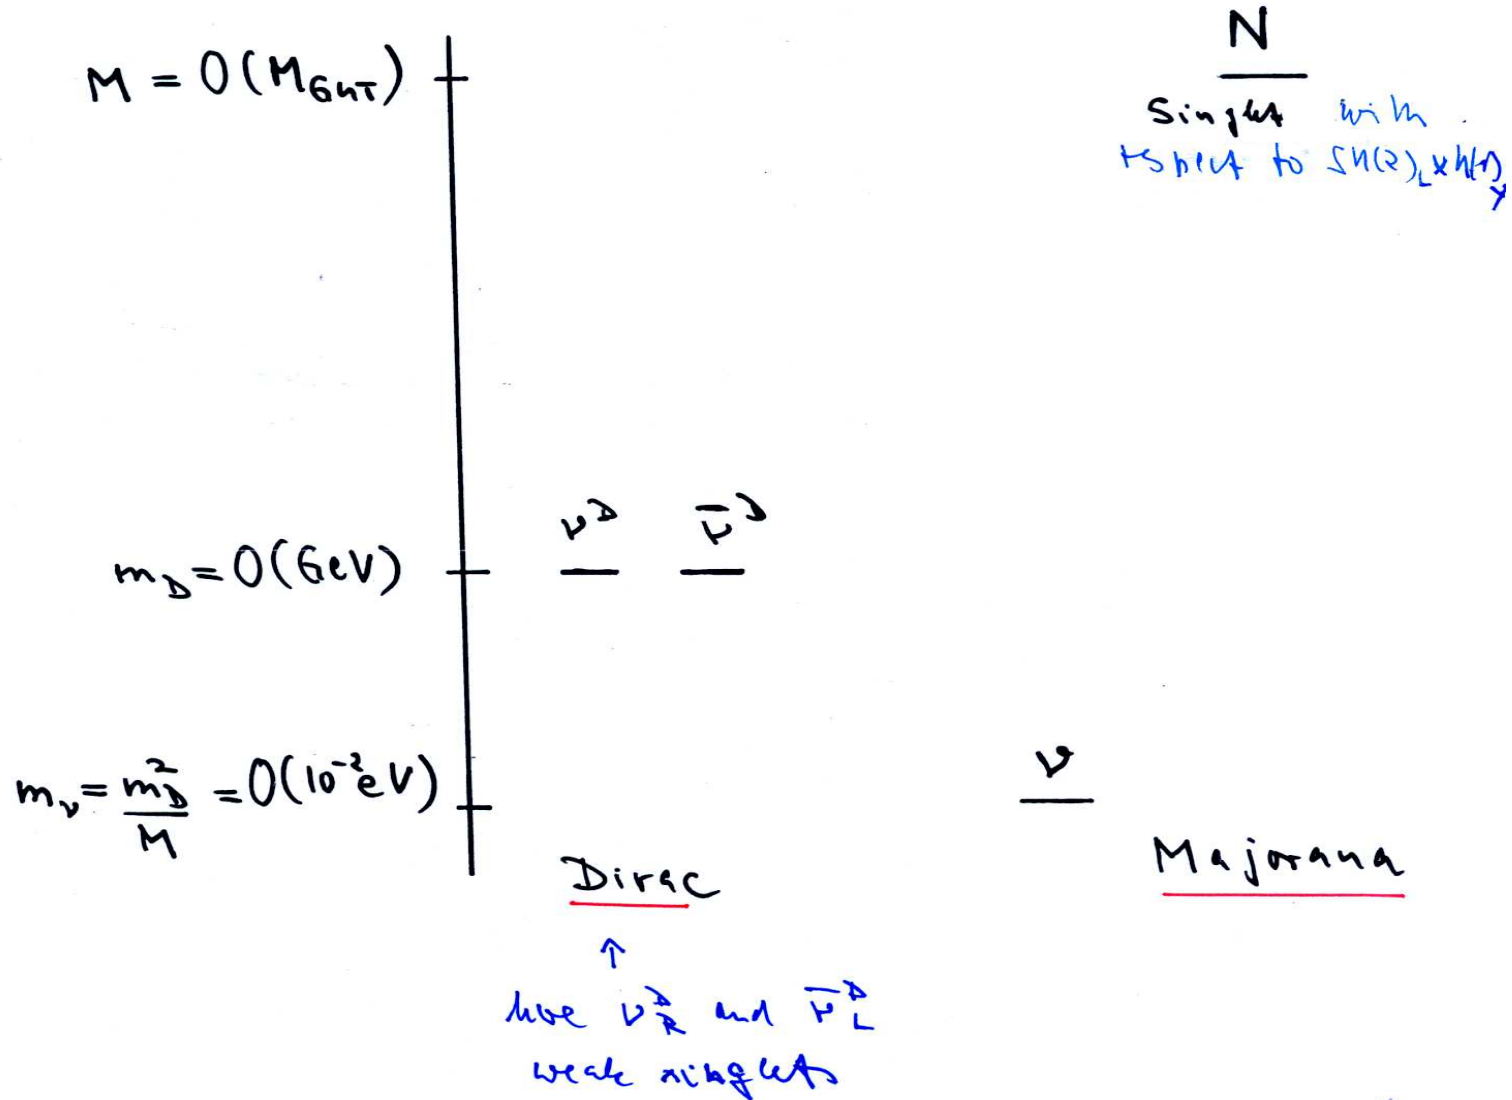 N
M = O(M_GUT)
Singlet with
respect to SU(2)_L x U(1)_Y
ν^D ν̄^D
m_D = O(GeV)
ν
m_ν = m_D^2 / M = O(10^-2 eV)
Dirac
Majorana
↑
here ν_R^D and ν̄_L^D
weak singlets